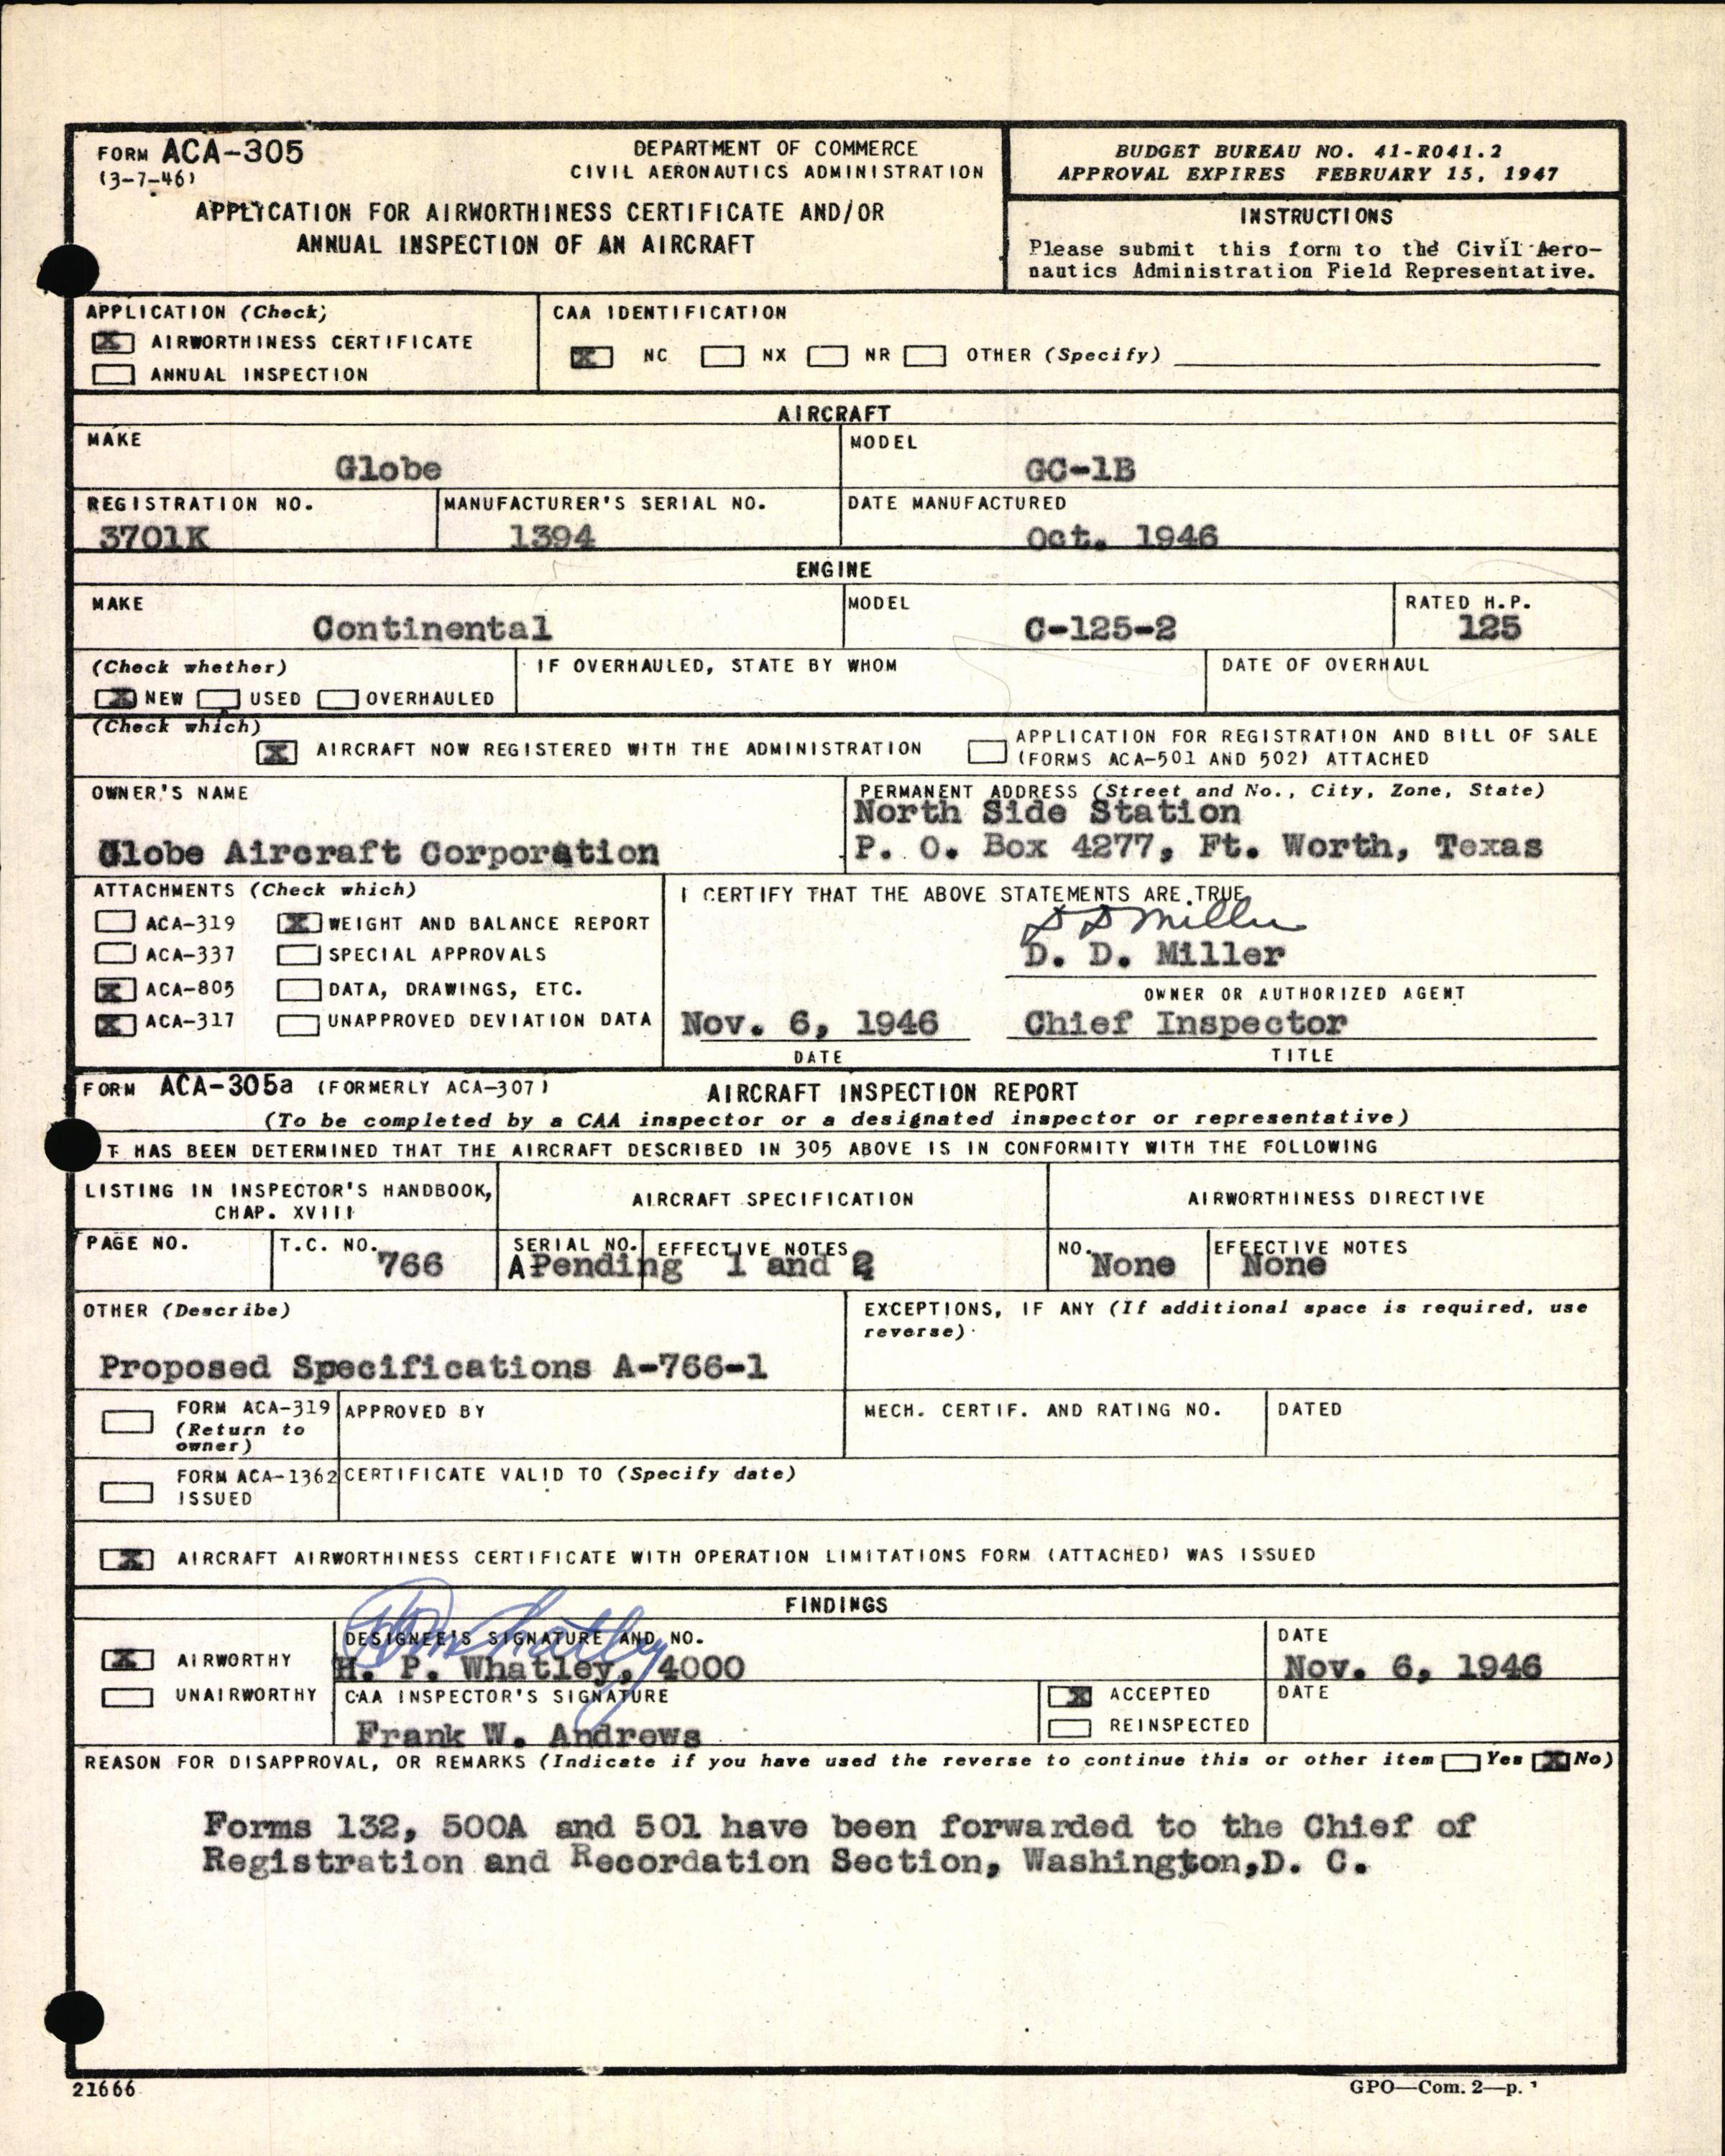 FORM ACA-305
(3-7-46)
DEPARTMENT OF COMMERCE
CIVIL AERONAUTICS ADMINISTRATION
APPLICATION FOR AIRWORTHINESS CERTIFICATE AND/OR
ANNUAL INSPECTION OF AN AIRCRAFT
BUDGET BUREAU NO. 41-R041.2
APPROVAL EXPIRES FEBRUARY 15, 1947
INSTRUCTIONS
Please submit this form to the Civil Aero-
nautics Administration Field Representative.
APPLICATION (Check)
X AIRWORTHINESS CERTIFICATE
ANNUAL INSPECTION
CAA IDENTIFICATION
X NC NX NR OTHER (Specify)
AIRCRAFT
MAKE
Globe
MODEL
GC-1B
REGISTRATION NO.
3701K
MANUFACTURER'S SERIAL NO.
1394
DATE MANUFACTURED
Oct. 1946
ENGINE
MAKE
Continental
MODEL
C-125-2
RATED H.P.
125
(Check whether)
X NEW USED OVERHAULED
IF OVERHAULED, STATE BY WHOM
DATE OF OVERHAUL
(Check which)
X AIRCRAFT NOW REGISTERED WITH THE ADMINISTRATION
APPLICATION FOR REGISTRATION AND BILL OF SALE
(FORMS ACA-501 AND 502) ATTACHED
OWNER'S NAME
Globe Aircraft Corporation
PERMANENT ADDRESS (Street and No., City, Zone, State)
North Side Station
P. O. Box 4277, Ft. Worth, Texas
ATTACHMENTS (Check which)
ACA-319 X WEIGHT AND BALANCE REPORT
ACA-337 SPECIAL APPROVALS
X ACA-805 DATA, DRAWINGS, ETC.
X ACA-317 UNAPPROVED DEVIATION DATA
I CERTIFY THAT THE ABOVE STATEMENTS ARE TRUE
D D Miller
D. D. Miller
OWNER OR AUTHORIZED AGENT
Nov. 6, 1946 Chief Inspector
DATE TITLE
FORM ACA-305a (FORMERLY ACA-307) AIRCRAFT INSPECTION REPORT
(To be completed by a CAA inspector or a designated inspector or representative)
T HAS BEEN DETERMINED THAT THE AIRCRAFT DESCRIBED IN 305 ABOVE IS IN CONFORMITY WITH THE FOLLOWING
LISTING IN INSPECTOR'S HANDBOOK,
CHAP. XVIII
AIRCRAFT SPECIFICATION
AIRWORTHINESS DIRECTIVE
PAGE NO.
T.C. NO.
766
SERIAL NO. EFFECTIVE NOTES
A Pending 1 and 2
NO.
None
EFFECTIVE NOTES
None
OTHER (Describe)
Proposed Specifications A-766-1
EXCEPTIONS, IF ANY (If additional space is required, use
reverse)
FORM ACA-319
(Return to
owner)
APPROVED BY
MECH. CERTIF. AND RATING NO.
DATED
FORM ACA-1362
ISSUED
CERTIFICATE VALID TO (Specify date)
X AIRCRAFT AIRWORTHINESS CERTIFICATE WITH OPERATION LIMITATIONS FORM (ATTACHED) WAS ISSUED
FINDINGS
X AIRWORTHY
UNAIRWORTHY
DESIGNEE'S SIGNATURE AND NO.
H P Whatley
H. P. Whatley, 4000
DATE
Nov. 6, 1946
CAA INSPECTOR'S SIGNATURE
Frank W. Andrews
X ACCEPTED
REINSPECTED
DATE
REASON FOR DISAPPROVAL, OR REMARKS (Indicate if you have used the reverse to continue this or other item Yes X No)
Forms 132, 500A and 501 have been forwarded to the Chief of
Registration and Recordation Section, Washington,D. C.
21666
GPO—Com. 2—p.